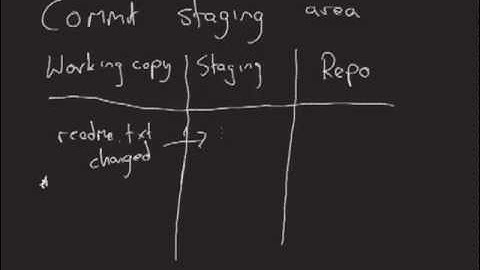 Commit staging area
Working copy Staging Repo
readme.txt
changed